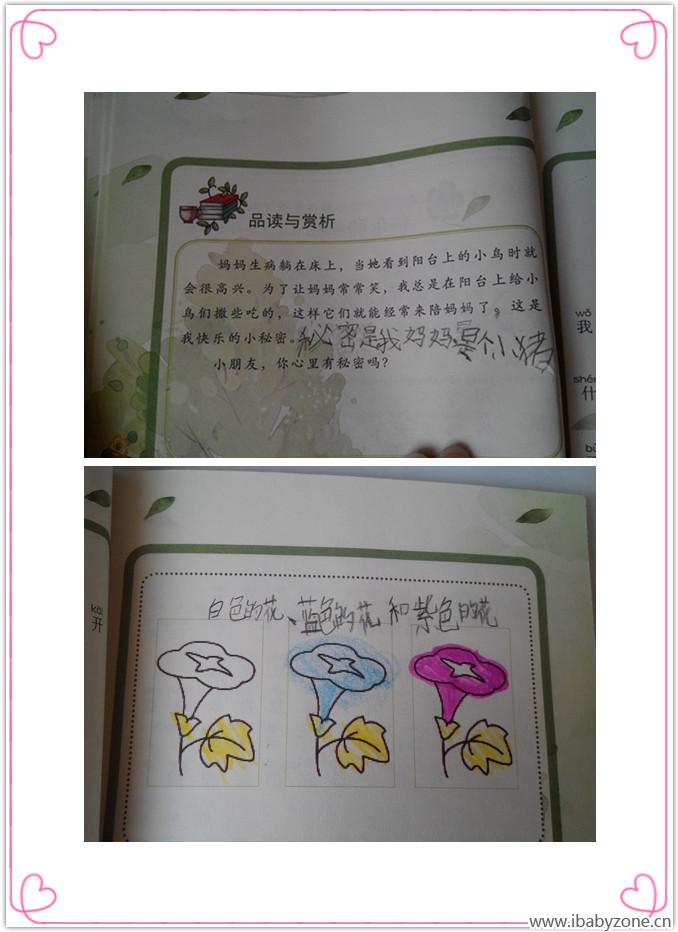 品读与赏析
妈妈生病躺在床上，当她看到阳台上的小鸟时就
会很高兴。为了让妈妈常常笑，我总是在阳台上给小
鸟们撒些吃的，这样它们就能经常来陪妈妈了。这是
我快乐的小秘密。
秘密是我妈妈是个小猪
小朋友，你心里有秘密吗？
wǒ
我
shén
什
白色的花、蓝色的花和紫色的花
kāi
开
www.ibabyzone.cn